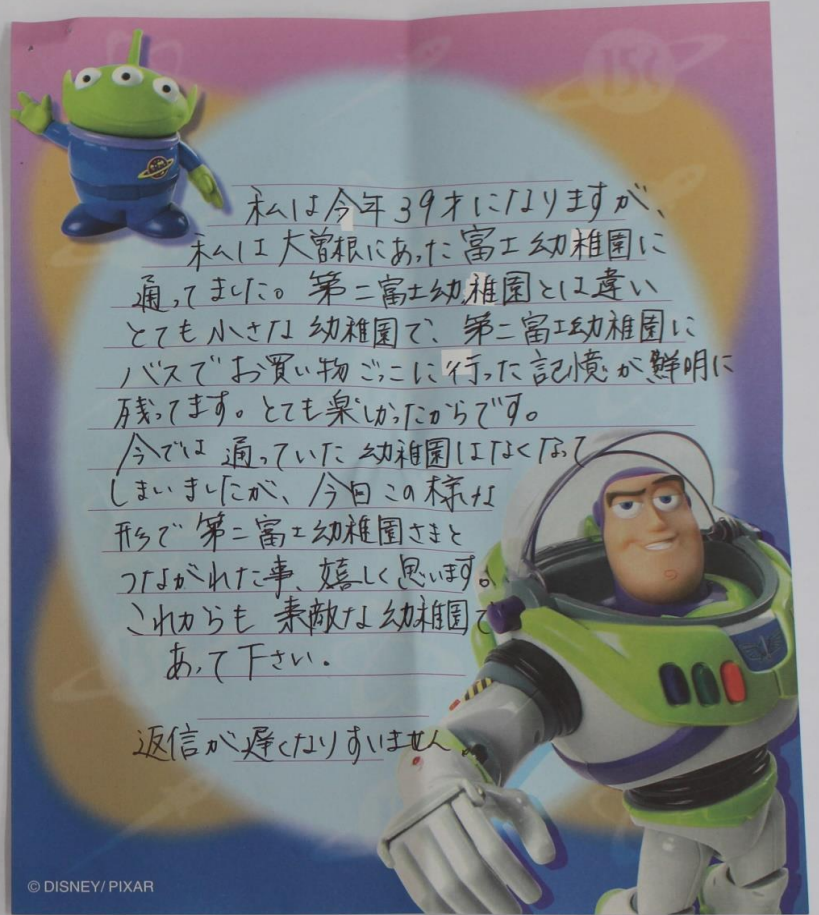 私は今年39才になりますが、
私は大曽根にあった富士幼稚園に
通ってました。第二富士幼稚園とは違い
とても小さな幼稚園で、第二富士幼稚園に
バスでお買い物ごっこに行った記憶が鮮明に
残ってます。とても楽しかったからです。
今では通っていた幼稚園はなくなって
しまいましたが、今日この様な
形で第二富士幼稚園さまと
つながれた事、嬉しく思います。
これからも素敵な幼稚園で
あって下さい。
返信が遅くなりすいません。
© DISNEY/PIXAR